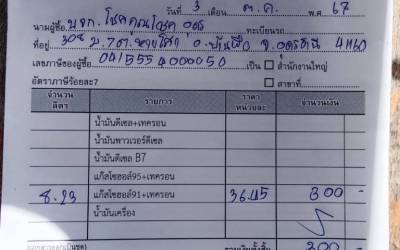 วันที่ 3 เดือน ต.ค. พ.ศ 67
นามผู้ซื้อ บจก. โชคคูณโชค อุดร ทะเบียนรถ
ที่อยู่ 308 ม.7 ต. หายโศก อ. บ้านผือ จ. อุดรธานี 41160
เลขภาษีของผู้ซื้อ 0415554000050 เป็น ☐ สำนักงานใหญ่
อัตราภาษีร้อยละ7 ☐ สาขาที่
จำนวนลิตร รายการ ราคาหน่วยละ จำนวนเงิน
น้ำมันดีเซล+เทครอน
น้ำมันพาวเวอร์ดีเซล
น้ำมันดีเซล B7
แก๊สโซฮอล์95+เทครอน
8.23 แก๊สโซฮอล์91+เทครอน 36.45 300 -
น้ำมันเครื่อง
รวมเงินทั้งสิ้น 300 -